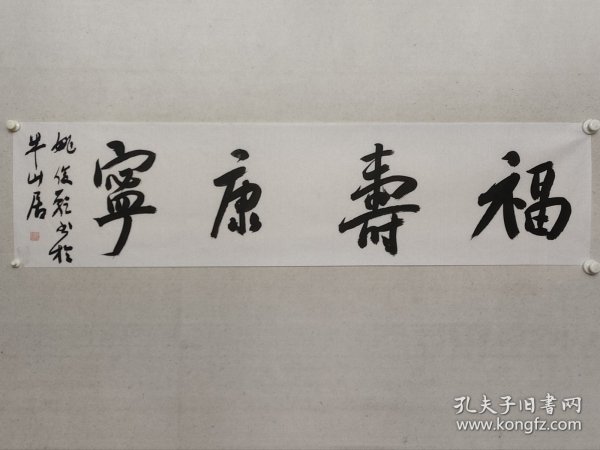 福壽康寧
姚俊卿书於
牛山居
孔夫子旧書网
www.kongfz.com